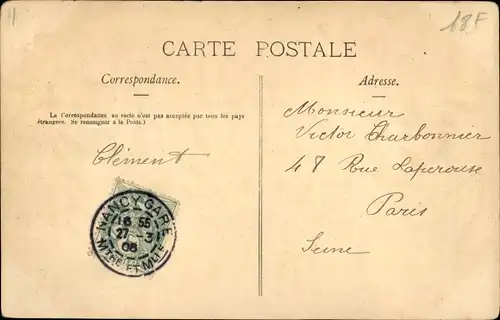 11
18F
CARTE POSTALE
Correspondance.
La Correspondance au recto n'est pas acceptée par tous les pays
étrangers. Se renseigner à la Poste.)
Clément
NANCY GARE
16 55
27 - 3
06
MTHE ET MLLE
Adresse.
Monsieur
Victor Charbonnier
48 Rue Laperouse
Paris
Seine